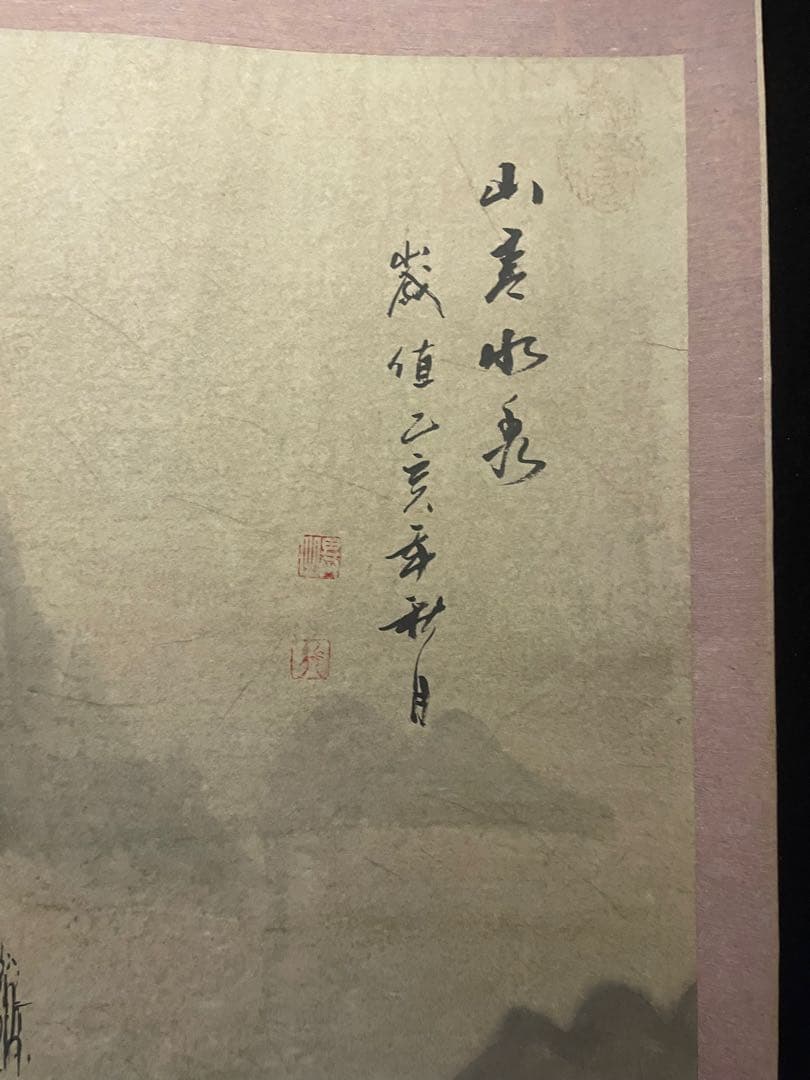 山青水秀
歲值乙亥年秋月